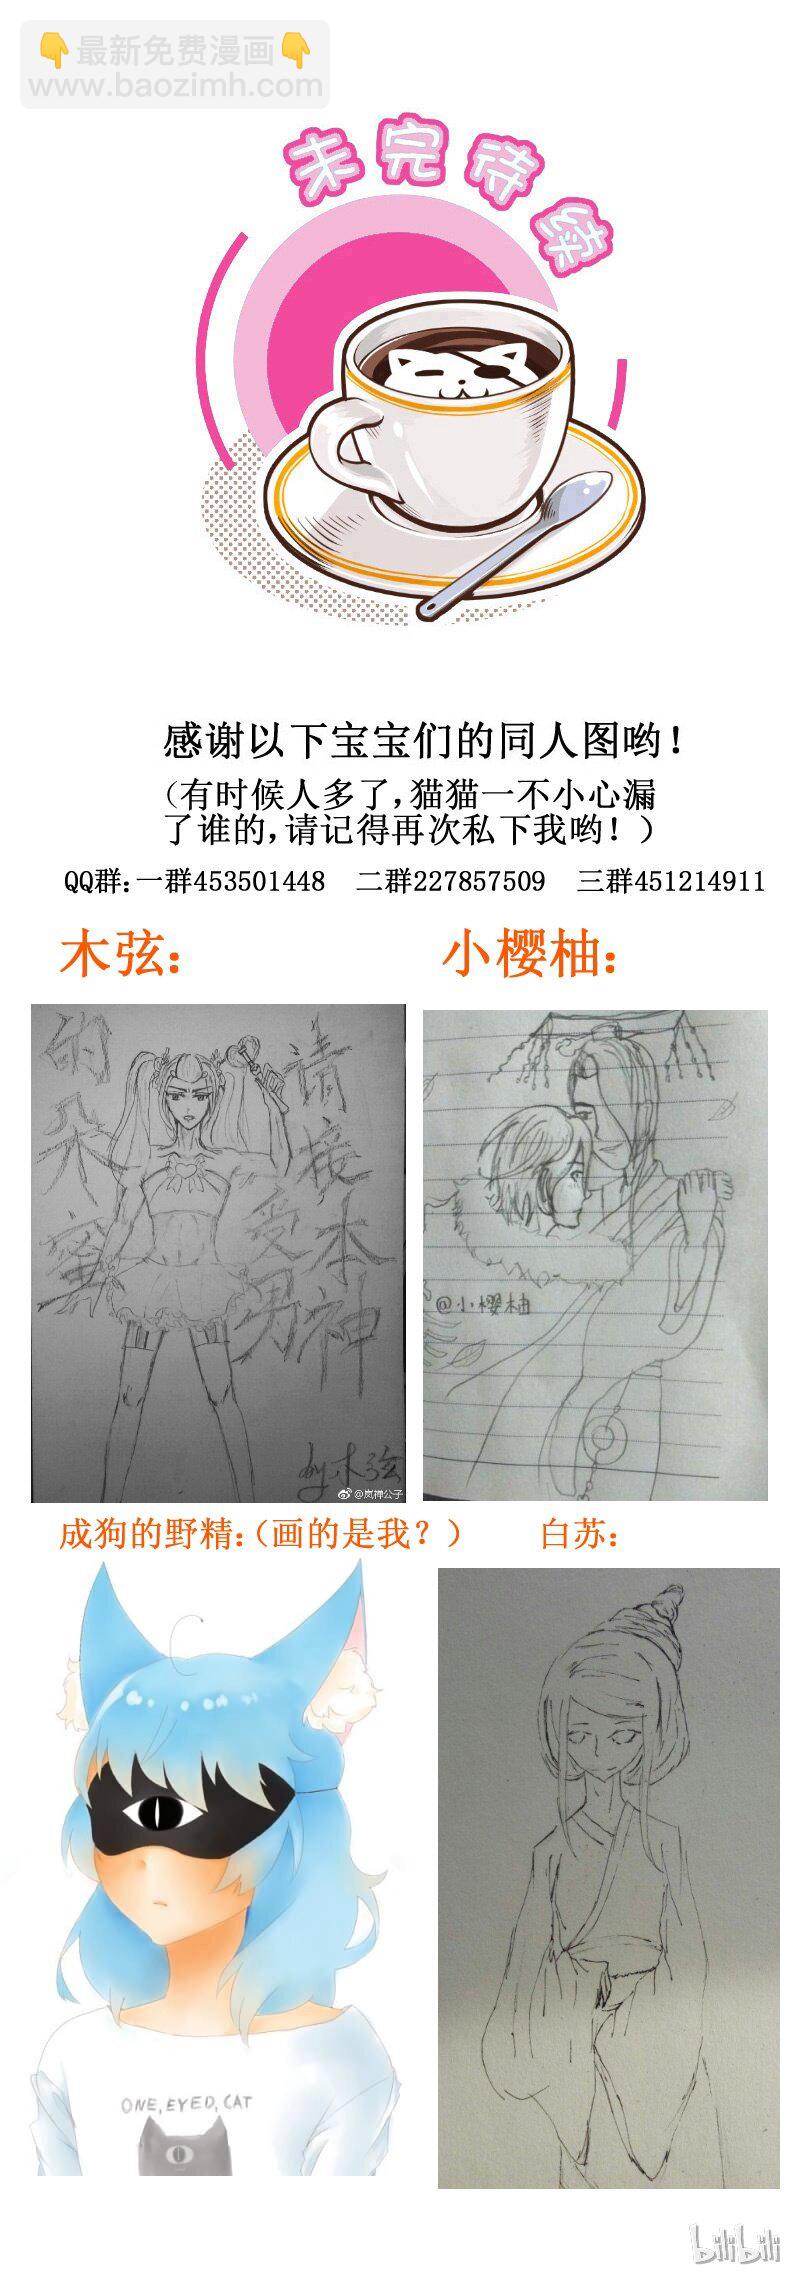 👇最新免费漫画👇
www.baozimh.com
未完待续
感谢以下宝宝们的同人图哟！
（有时候人多了，猫猫一不小心漏
了谁的，请记得再次私下我哟！）
QQ群：一群453501448　二群227857509　三群451214911
木弦：
小樱柚：
请接受木男神
的朵蜜
by木弦
@岚禅公子
@小樱柚
成狗的野精：（画的是我？）
白苏：
ONE,EYED,CAT
bilibili